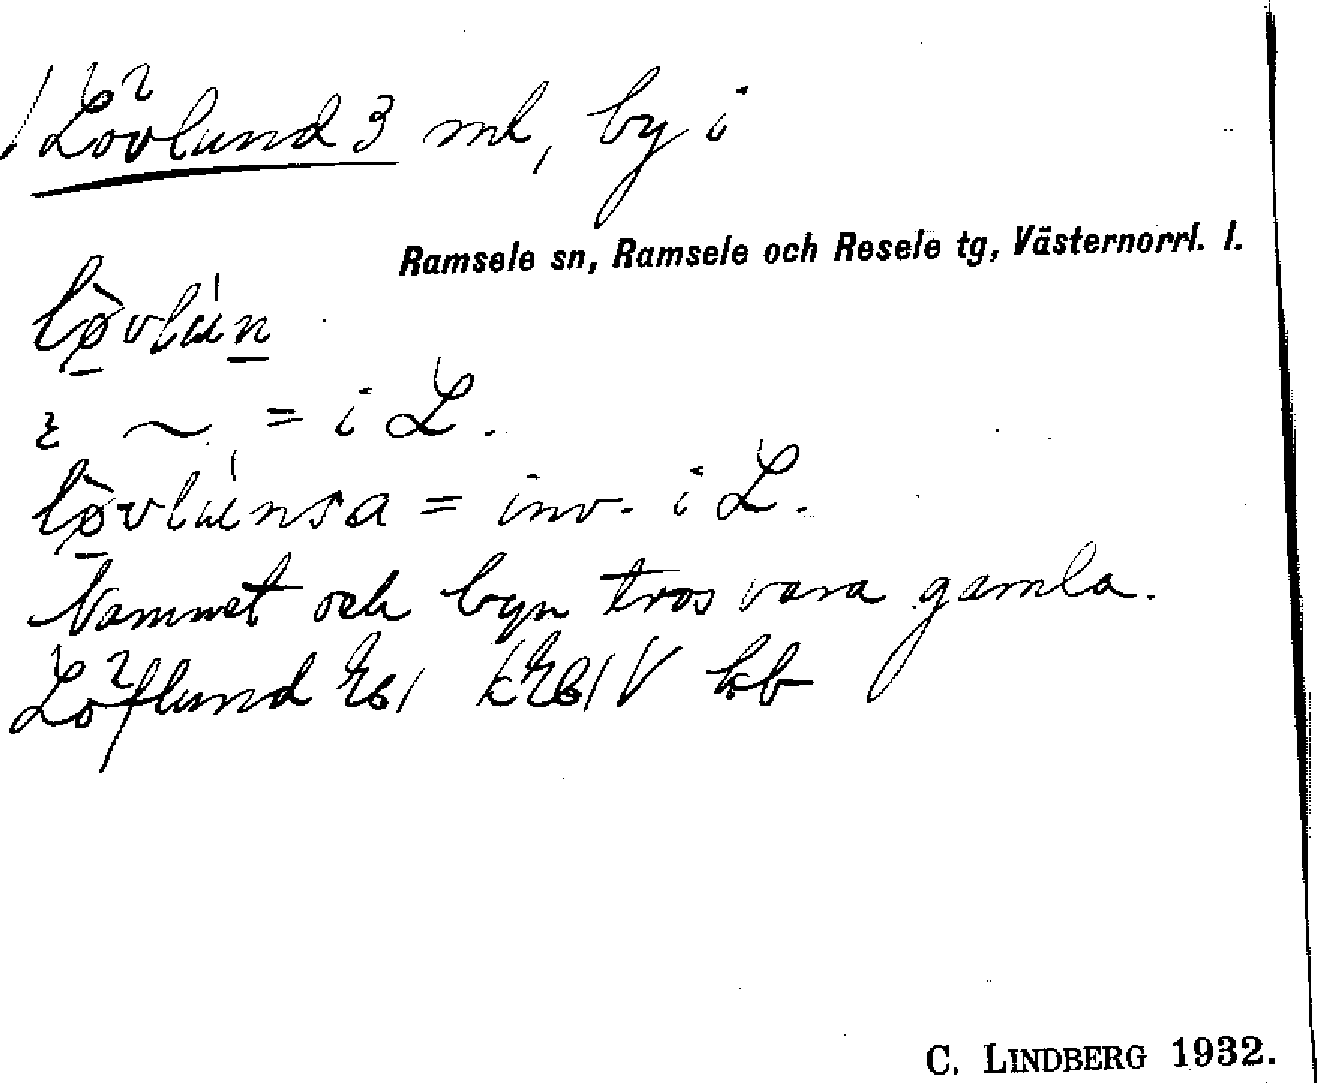 Lövlund 3 ml, by i
Ramsele sn, Ramsele och Resele tg, Västernorrl. l.
lø̀vlún
ɩ ~ = i L.
lø̀vlúnsa = inv. i L.
Namnet och byn tros vara gamla.
Löflund Eb, kEb, V kb
C. LINDBERG 1932.